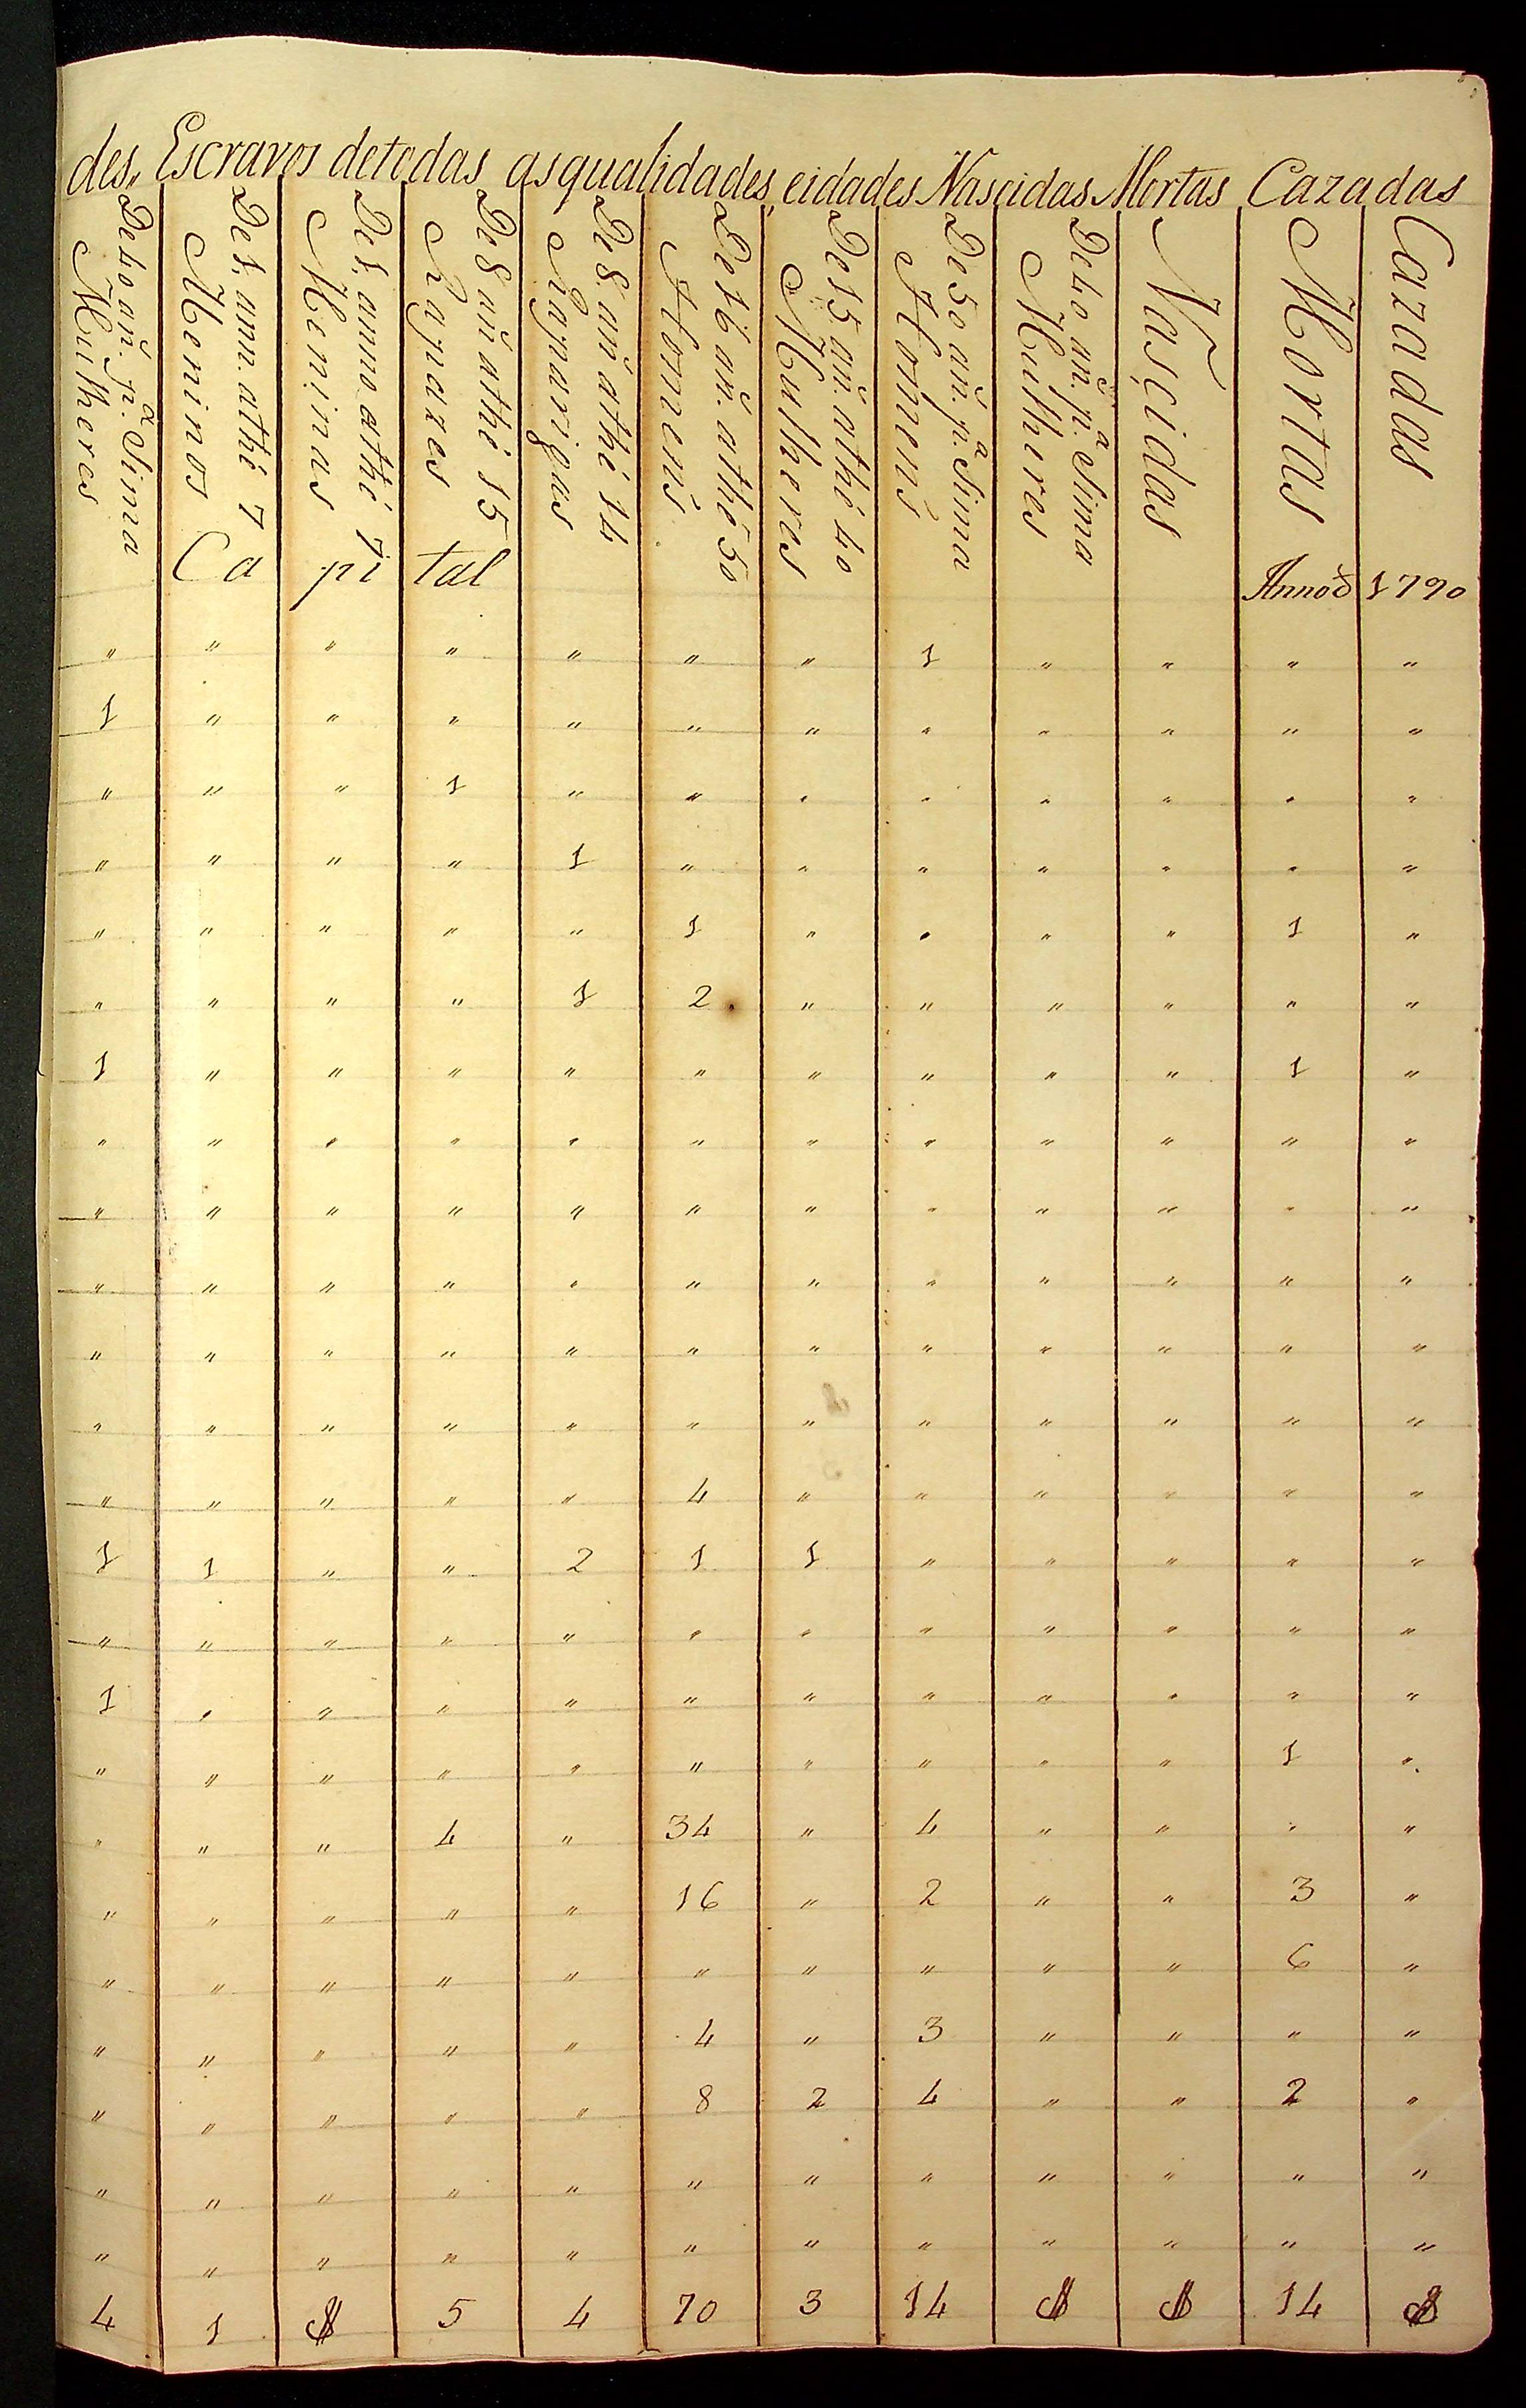 des, Escravos detodas asqualidades, eidades Nascidas Mortas Cazadas
De 40 añ. p.ª Sima Mulheres
De 1. ann. athé 7 Meninos
De 1. anno athé 7 Meninas
De 8 añ athé 15 Rapazes
De 8. añ athé 14 Raparigas
De 16 añ. athé 50 Homens
De 15 añ. athé 40 Mulheres
De 50 añ. p.ª Sima Homens
De 40 añ. p.ª Sima Mulheres
Nascidas
Mortas
Cazadas
Ca pi tal Anno d 1790
" " " " " " " 1 " " " "
1 " " " " " " " " " " "
" " " 1 " " " " " " " "
" " " " 1 " " " " " " "
" " " " " 1 " " " " 1 "
" " " " 1 2 " " " " " "
1 " " " " " " " " " 1 "
" " " " " " " " " " " "
" " " " " " " " " " " "
" " " " " " " " " " " "
" " " " " " " " " " " "
" " " " " " " " " " " "
" " " " " 4 " " " " " "
1 1 " " 2 1 1 " " " " "
" " " " " " " " " " " "
1 " " " " " " " " " " "
" " " " " " " " " " 1 "
" " " 4 " 34 " 4 " " " "
" " " " " 16 " 2 " " 3 "
" " " " " " " " " " 6 "
" " " " " 4 " 3 " " " "
" " " " " 8 2 4 " " 2 "
" " " " " " " " " " " "
" " " " " " " " " " " "
4 1 $ 5 4 70 3 14 $ $ 14 $